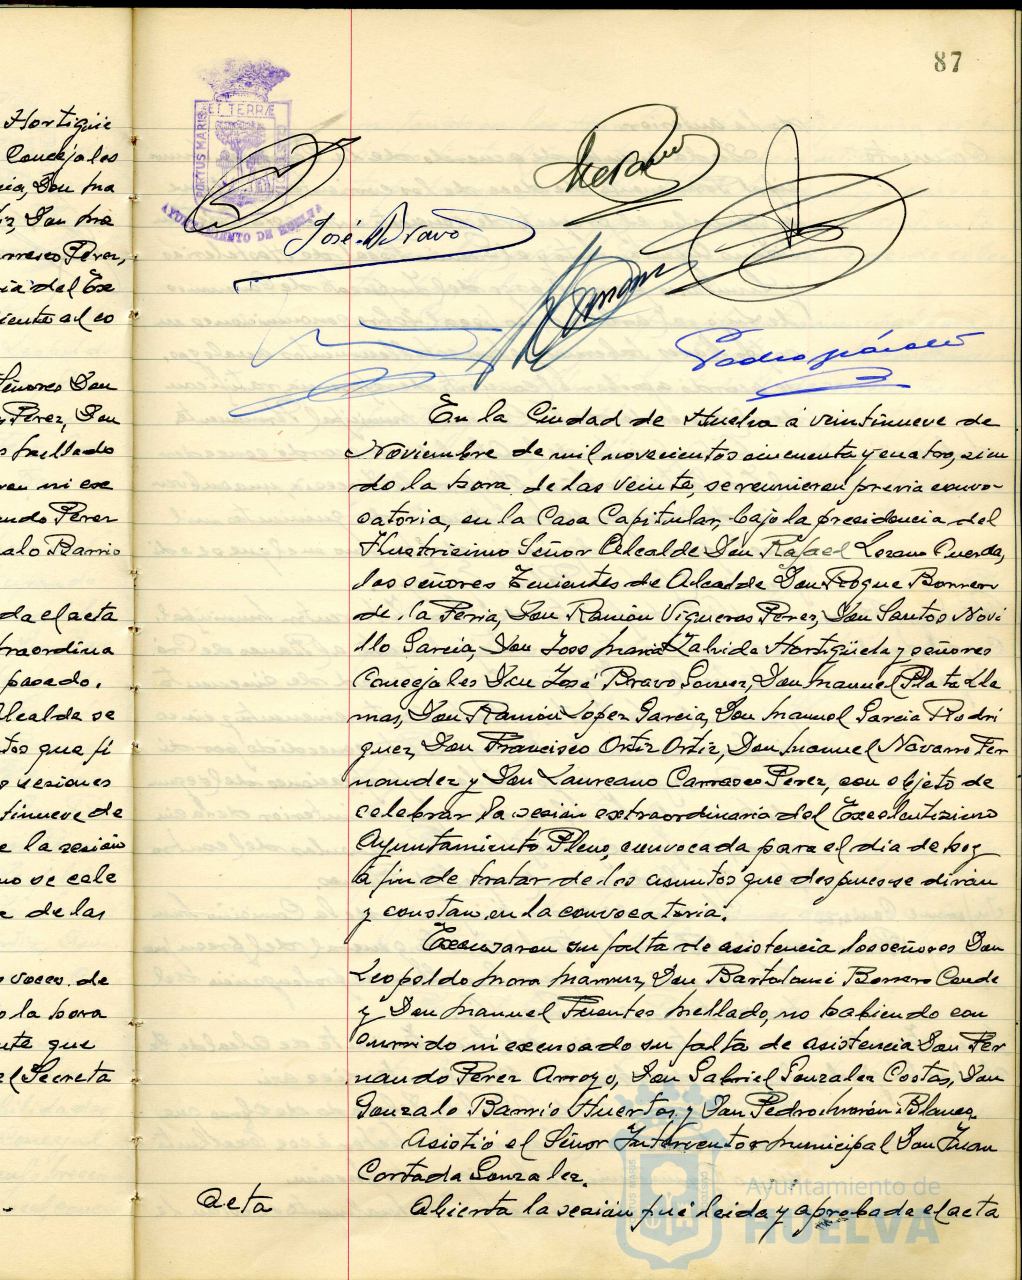 87
Hortigüe
Concejales
cia, Don Ma
Don Ma
rrasco Perez,
ria del Ex
diente al co
Señores Don
Perez, Don
Mellado
ando Perez
alo Barrio
da el acta
traordina
pasado.
Alcalde se
tos que fi
sesiones
tinueve de
e la sesión
no se cele
e de las
voces de
la hora
que
el Secreta
PORTUS MARIS ET TERRÆ CUSTODIA
AYUNTAMIENTO DE HUELVA
José Bravo
En la Ciudad de Huelva a veintinueve de
Noviembre de mil novecientos cincuenta y cuatro, sien
do la hora de las veinte, se reunieron previa convo-
catoria, en la Casa Capitular, bajo la presidencia del
Ilustrisimo Señor Alcalde Don Rafael Lozano Cuerda,
los señores Tenientes de Alcalde Don Roque Borrero
de la Feria, Don Ramón Vigueras Perez, Don Santos Novi
llo Garcia, Don Jose Maria Zalvide Hortigüela y señores
Concejales Don José Bravo Gomez, Don Manuel Plata Lla
mas, Don Ramón Lopez Garcia, Don Manuel Garcia Rodri
guez, Don Francisco Ortiz Ortiz, Don Manuel Navarro Fer
nandez y Don Laureano Carrasco Perez, con objeto de
celebrar la sesión extraordinaria del Excelentisimo
Ayuntamiento Pleno, convocada para el dia de hoy
a fin de tratar de los asuntos que despues se dirán
y constan en la convocatoria.
Excusaron su falta de asistencia los señores Don
Leopoldo Mora Don Bartolomé Borrero Conde
y Don Manuel Fuentes Mellado, no habiendo con
currido ni excusado su falta de asistencia Don Fer
nando Perez Arroyo, Don Gabriel Gonzalez Costas, Don
Gonzalo Barrio Huertos y Don Pedro Morón Blanco.
Asistió el Señor Interventor Municipal Don Juan
Cortada Gonzalez.
Acta
Abierta la sesión fué leida y aprobada el acta
Ayuntamiento de
HUELVA